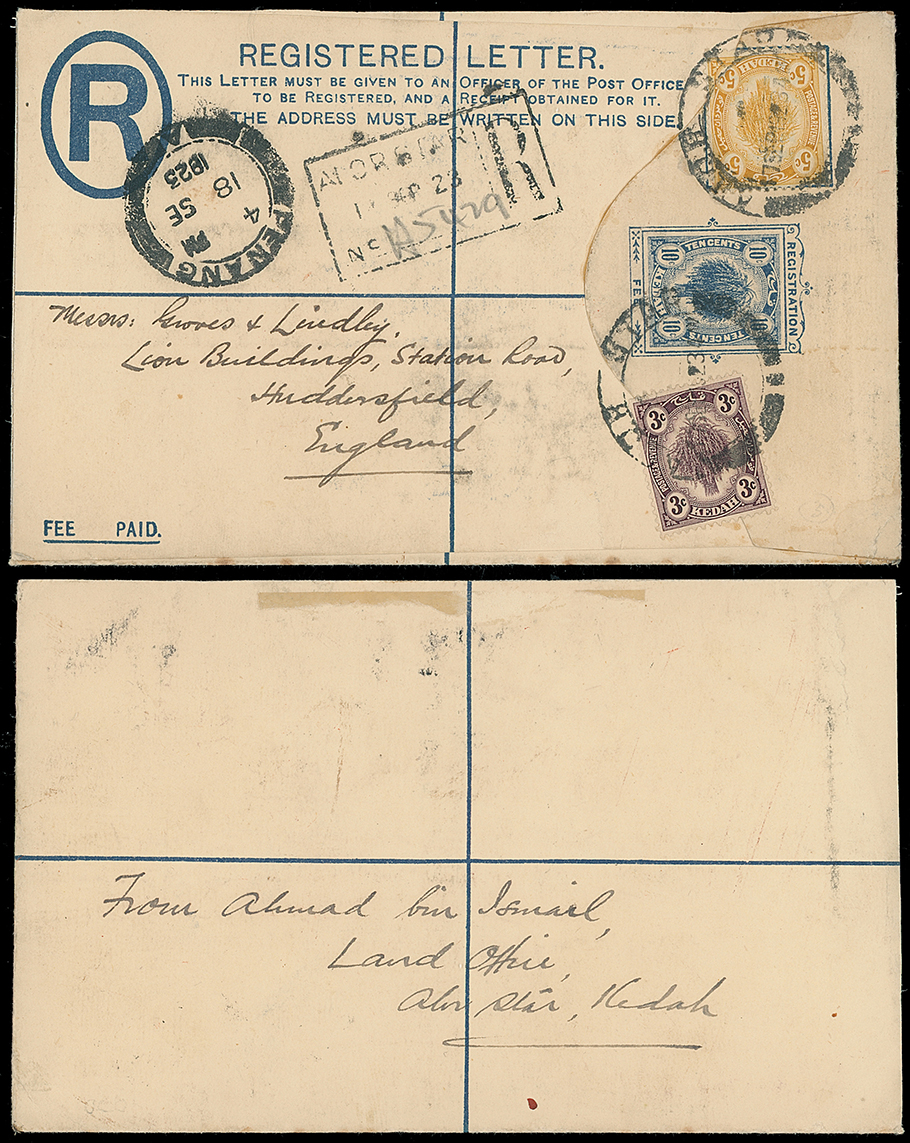 R
REGISTERED LETTER.
THIS LETTER MUST BE GIVEN TO AN OFFICER OF THE POST OFFICE
TO BE REGISTERED, AND A RECEIPT OBTAINED FOR IT.
THE ADDRESS MUST BE WRITTEN ON THIS SIDE.
PENANG
4 PM
18 SE
1923
ALOR STAR
17 SEP 23
R
No
KEDAH
5c
5c
5c
5c
TEN CENTS
10c
10c
KEDAH
10c
10c
TEN CENTS
REGISTRATION
FEE
3c
3c
POSTAGE & REVENUE
3c
3c
KEDAH
Messrs: Groves & Lindley,
Lion Buildings, Station Road,
Huddersfield,
England
FEE PAID.
From Ahmad bin Ismail,
Land Office,
Alor Star, Kedah